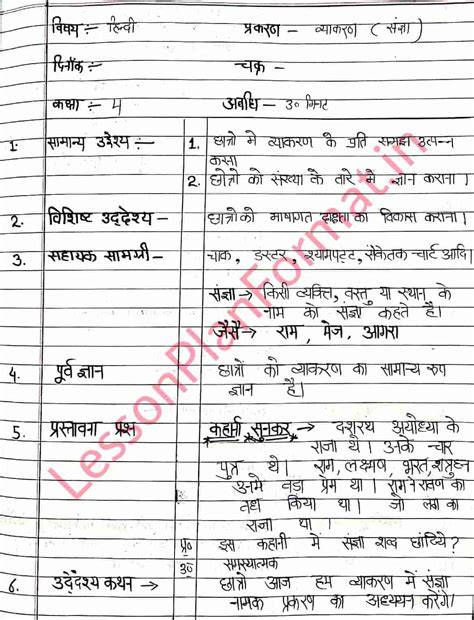 विषय :- हिन्दी प्रकरण - व्याकरण ( संज्ञा )
दिनाँक :- चक्र -
कक्षा :- 4 अवधि - 30 मिनट
1. सामान्य उद्देश्य :- 1. छात्रो मे व्याकरण के प्रति समझ उत्पन्न
करना
2. छात्रो को संख्या के तारे मे ज्ञान कराना ।
2. विशिष्ट उद्देश्य - छात्रो को भाषागत दक्षता का विकास कराना ।
3. सहायक सामग्री - चाक, डस्टर, श्यामपट्ट, संकेतक चार्ट आदि।
संज्ञा → किसी व्यक्ति, वस्तु या स्थान के
नाम को संज्ञा कहते है।
जैसे → राम, मेज, आगरा
4. पूर्व ज्ञान छात्रों को व्याकरण का सामान्य रुप
ज्ञान है।
5. प्रस्तावना प्रश्न कहानी सुनकर → दशरथ अयोध्या के
राजा थे । उनके चार
पुत्र थे । राम, लक्ष्मण, भरत, शत्रुघ्न
उनमे बड़ा प्रेम था । राम ने रावण का
वध किया था । जो लंका का
राजा था ।
प्र० इस कहानी में संज्ञा शब्द छांटिये?
उ० समस्यात्मक
6. उद्देश्य कथन → छात्रो आज हम व्याकरण में संज्ञा
नामक प्रकरण का अध्ययन करेंगे।
LessonPlanFormat.in